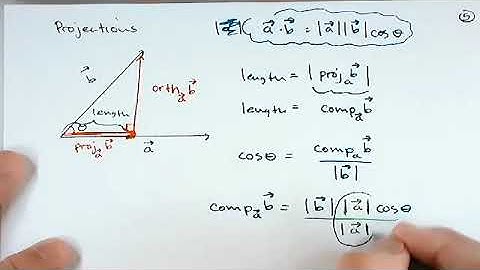 Projections
a⃗ · b⃗ = |a⃗||b⃗| cosθ
5
b⃗
orth_a⃗ b⃗
length
θ
proj_a⃗ b⃗
a⃗
length = |proj_a⃗ b⃗|
length = comp_a⃗ b⃗
cosθ = comp_a⃗ b⃗ / |b⃗|
comp_a⃗ b⃗ = |b⃗||a⃗| cosθ / |a⃗|